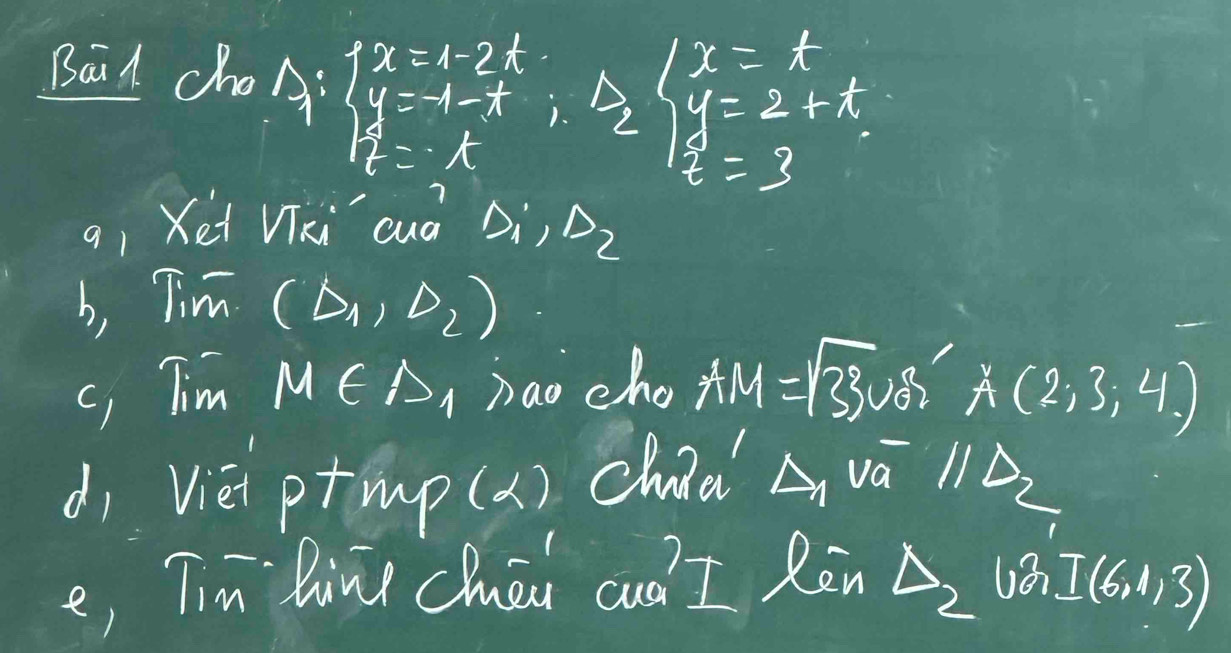 Bài 1 cho Δ₁: { x = 1 - 2t ; Δ₂ { x = t
y = -1 - t y = 2 + t
z = t z = 3
a, Xét VTKí của Δ₁, Δ₂
b, Tìm (Δ₁, Δ₂).
c, Tìm M ∈ Δ₁ sao cho AM = √33 với A (2; 3; 4)
d, Viết pt mp (α) chứa Δ₁ và // Δ₂
e, Tìm hình chiếu của I lên Δ₂ với I(6,1,3)